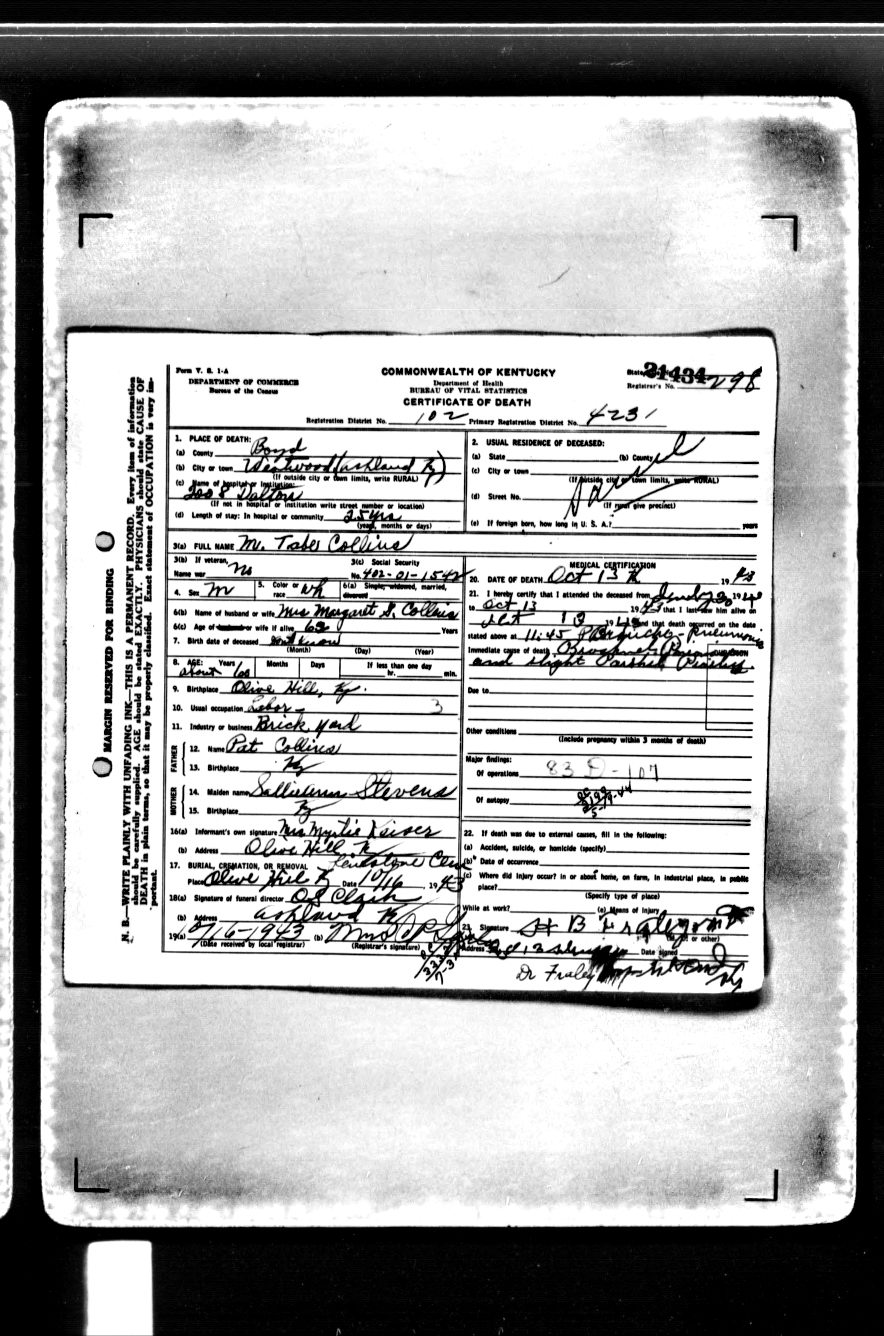 N. B.—WRITE PLAINLY WITH UNFADING INK—THIS IS A PERMANENT RECORD. Every item of information
should be carefully supplied. AGE should be stated EXACTLY. PHYSICIANS should state CAUSE OF
DEATH in plain terms, so that it may be properly classified. Exact statement of OCCUPATION is very im-
portant.
MARGIN RESERVED FOR BINDING
Form V. S. 1-A
DEPARTMENT OF COMMERCE
Bureau of the Census
COMMONWEALTH OF KENTUCKY
Department of Health
BUREAU OF VITAL STATISTICS
CERTIFICATE OF DEATH
State 21434
Registrar's No. 298
Registration District No. 102 Primary Registration District No. 4231
1. PLACE OF DEATH:
(a) County Boyd
(b) City or town Westwood (Ashland Ky)
(If outside city or town limits, write RURAL)
(c) Name of hospital or institution:
2008 Dalton
(If not in hospital or institution write street number or location)
(d) Length of stay: In hospital or community 25 yrs
(years, months or days)
2. USUAL RESIDENCE OF DECEASED:
(a) State (b) County
(c) City or town
(If outside city or town limits, write RURAL)
(d) Street No.
(If rural give precinct)
(e) If foreign born, how long in U. S. A.? years
3(a) FULL NAME M. Taber Collins
3(b) If veteran, Name war No
3(c) Social Security No. 402-01-1542
4. Sex M 5. Color or race wh 6(a) Single, widowed, married, divorced
6(b) Name of husband or wife Mrs Margaret S. Collins
6(c) Age of husband or wife if alive 62 Years
7. Birth date of deceased dont know
(Month) (Day) (Year)
8. AGE: Years Months Days If less than one day
about 60 hr. min.
9. Birthplace Olive Hill, Ky.
10. Usual occupation Labor - 3
11. Industry or business Brick yard
FATHER
12. Name Pat Collins
13. Birthplace Ky
MOTHER
14. Maiden name Sallieann Stevens
15. Birthplace Ky
16(a) Informant's own signature Mrs Myrtie Keiser
(b) Address Olive Hill, Ky
17. BURIAL, CREMATION, OR REMOVAL
Place Olive Hill Ky Date 10/16 1943
18(a) Signature of funeral director
(b) Address Ashland Ky
19(a) 10/16-1943 (b) Mrs
(Date received by local registrar) (Registrar's signature)
MEDICAL CERTIFICATION
20. DATE OF DEATH Oct 13 th 1943
21. I hereby certify that I attended the deceased from 19
to Oct 13 1943 that I last saw him alive on
13 19 and that death occurred on the date
stated above at 11:45 P Bronicho-Pneumonia
Immediate cause of death
DURATION
and slight
Due to
Other conditions
(Include pregnancy within 3 months of death)
Major findings:
Of operations 83 D - 107
Of autopsy
22. If death was due to external causes, fill in the following:
(a) Accident, suicide, or homicide (specify)
(b) Date of occurrence
(c) Where did injury occur? in or about home, on farm, in industrial place, in public
place?
(Specify type of place)
While at work? (e) Means of injury
23. Signature H B Fraley M D
(M. D. or other)
Address Date signed
Dr Fraley